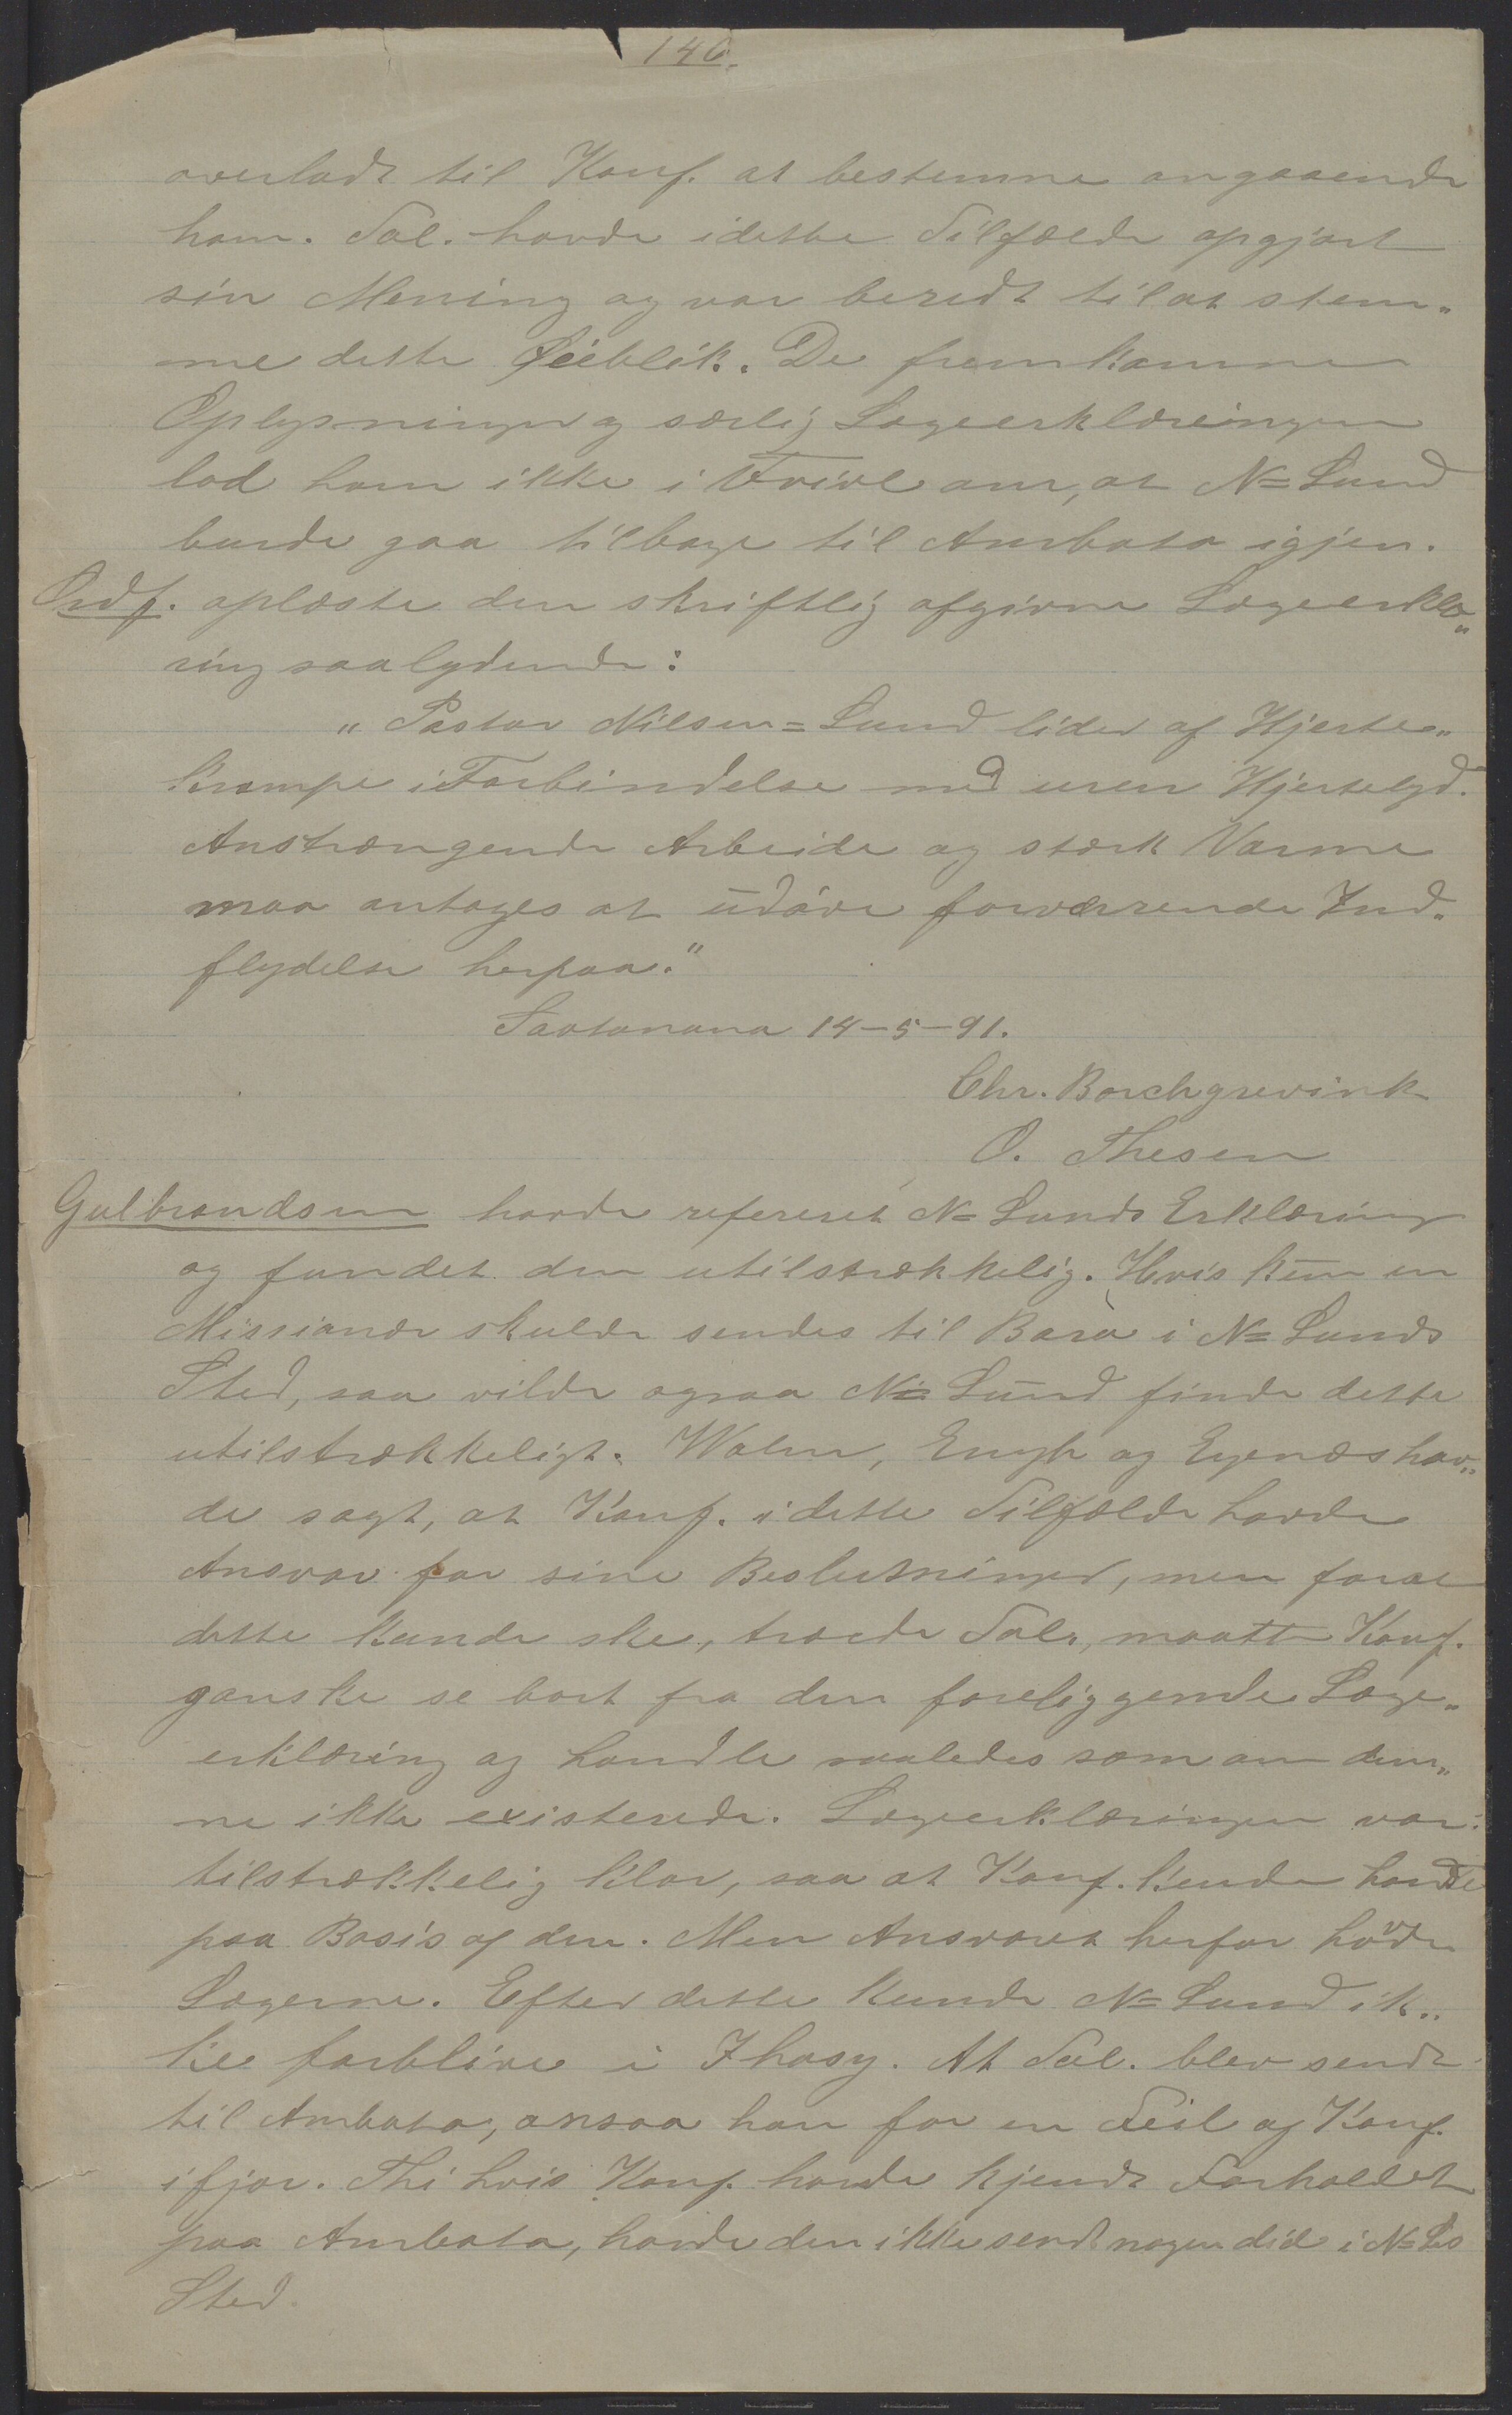 146.
overladt til Konf. at bestemme angaaende
ham. Tal. havde i dette Tilfælde opgjort
sin Mening og var beredt til at stem-
me dette Øieblik. De fremkomne
Oplysninger og særlig Lægeerklæringen
lod ham ikke i Tvivl om, at N=Lund
burde gaa tilbage til Ambato igjen.
Ordf. oplæste den skriftlig afgivne Lægeerklæ-
ring saalydende:
"Pastor Nilsen=Lund lider af Hjerte-
krampe i Forbindelse med uren Hjertelyd.
Anstrængende Arbeide og stærk Varme
maa antages at udøve forværrende Ind-
flydelse herpaa."
Soatanana 14-5-91.
Chr. Borchgrevink
O. Thesen
Gulbrandsen havde refereret N=Lunds Erklæring
og fundet den utilstrækkelig. Hvis kun en
Missionær skulde sendes til Bara i N=Lunds
Sted, saa vilde ogsaa N=Lund finde dette
utilstrækkeligt. Walen, Engh og Egenæs hav-
de sagt, at Konf. i dette Tilfælde havde
Ansvar for sine Beslutninger, men forat
dette kunde ske, troede Tal., maatte Konf.
ganske se bort fra den foreliggende Læge-
erklæring og handle saaledes som om den-
ne ikke existerede. Lægeerklæringen var
tilstrækkelig klar, saa at Konf. kunde handle
paa Basis af den. Men Ansvaret herfor havde
Lægerne. Efter dette kunde N=Lund ik-
ke forblive i Ihosy. At Tal. blev sendt
til Ambato, ansaa han for en Feil af Konf.
ifjor. Thi hvis Konf. havde kjendt Forholdet
paa Ambato, havde den ikke sendt nogen did i N=Ls
Sted.